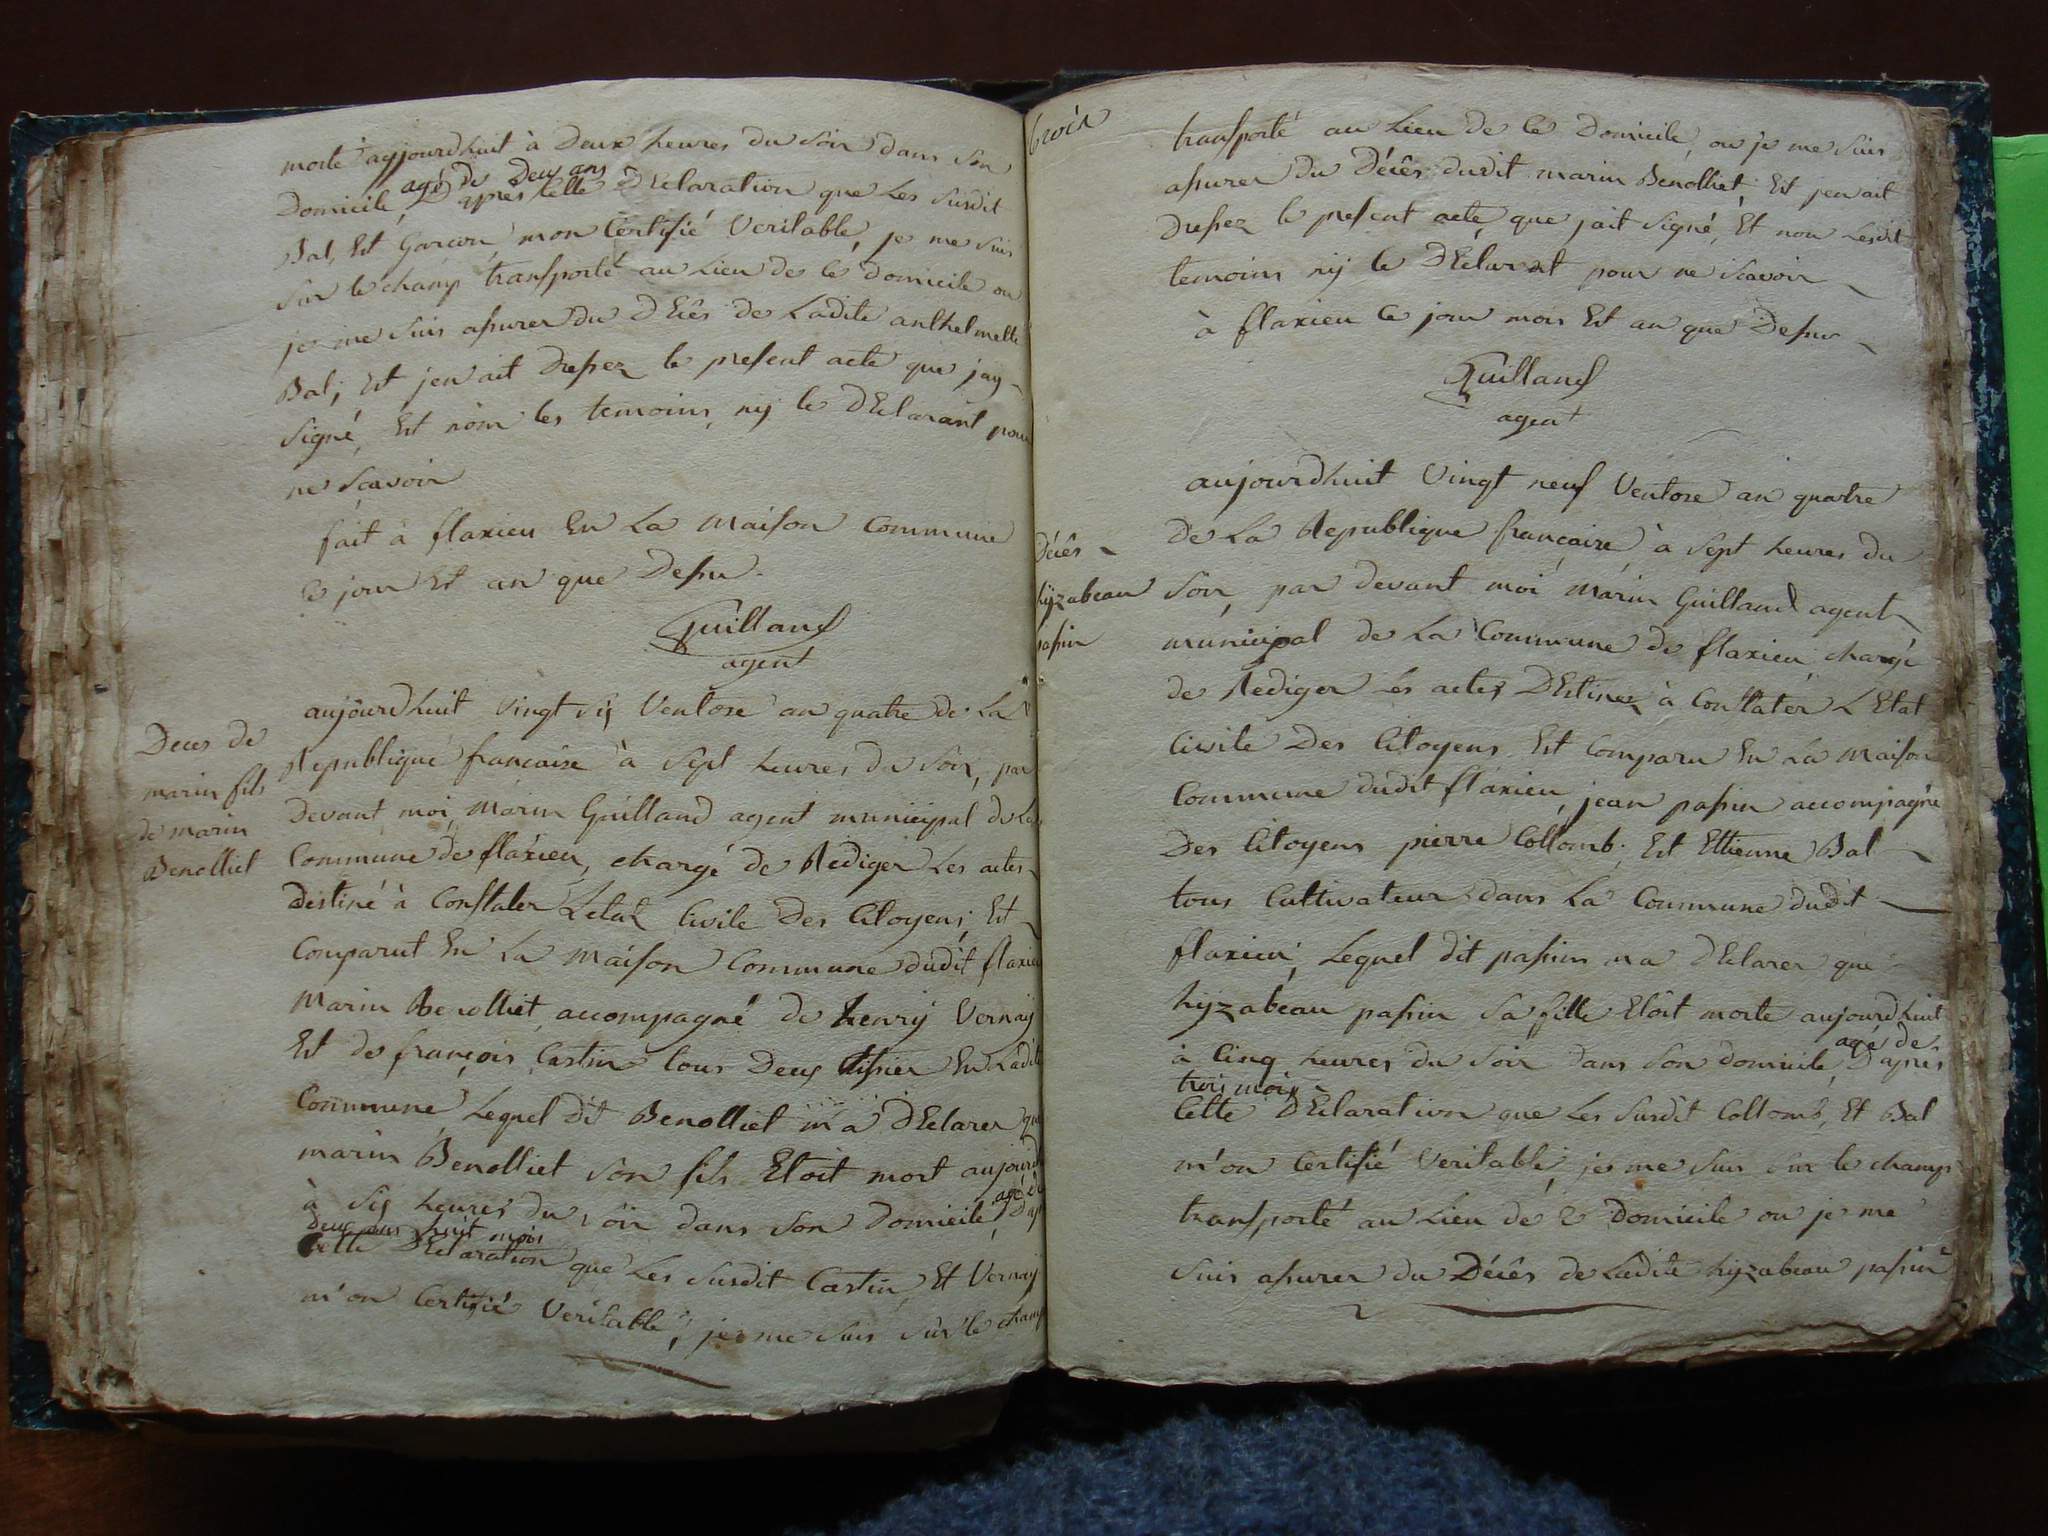 morte aujourdhuit à Deux heures du Soir dans Son
agé de Deux ans
Domicile, D'après Cette DEclaration que Les Susdit
Bal, Est Garcon m'on Certifié Veritable, je me Suis
Sur le champ transporté au Lieu de Ce domicile ou
je me Suis assurer du DEcês de Ladite anthelmette
Bal; Est jen ait Dressez le present acte que jay
Signé, Est nom les temoins nij le DEclarant pour
ne Scavoir
fait à flaxieu En La Maison Commune
Ce jour Et an que Dessu.
Guilland
agent
Deces de
marin fils
de marin
Benolliet
aujourdhuit Vingt six Ventose an quatre de La
Republique francaise à Sept heures du Soir, par
Devant moi, Marin Guilland agent municipal de La
Commune de flaxieu, chargé de Rediger Les actes
destiné à Constater Letat Civile Des Citoyens, Est
Comparut En La Maison Commune dudit flaxieu
Marin Benolliet, accompagné de henrij Vernaij
Est de françois Castin tous Deux tissier En Ladite
Commune Lequel dit Benolliet m'a dEclarer que
marin Benolliet son fils Etoit mort aujourd
à six heures du soir dans Son Domicile, D'ap
agé de
Deux ans huit mois
Cette DEclaration que Les Susdit Castin, Et Vernaij
m'on Certifié Veritable, je me Suis Sur le champ
trois
transporté au Lieu de Ce Domicile, ou je me Suis
assurer du Décês dudit marin Benolliet, Est jen ait
Dressez le present acte, que jait Signé, Et non Lesdit
temoins nij le DEclarant pour ne Scavoir
à flaxieu Ce jour mois Est an que Dessu
Guilland
agent
Décês
hijzabeau
passin
aujourdhuit Vingt neuf Ventose an quatre
De La Republique francaise, à Sept heures du
Soir, par devant moi Marin Guilland agent
municipal de La Commune de flaxieu chargé
de Rediger Les actes DEstinez à Constater LEtat
Civile Des Citoyens Est Comparu En La Maison
Commune dudit flaxieu, jean passin accompagné
Des Citoyens pierre Collomb, Est Ettienne Bal
tous Cultivateur dans La Commune dudit
flaxieu, Lequel dit passin m'a DEclarer que
hijzabeau passin Sa fille Etoit morte aujourdhuit
à Cinq heures du Soir dans Son domicile, D'après
agé de
trois mois
Cette DEclaration que Les Susdit Collomb, Et Bal
m'on Certifié Veritable, je me Suis Sur le champ
transporté au Lieu de Ce Domicile ou je me
Suis assurer du Décês de Ladite hijzabeau passin